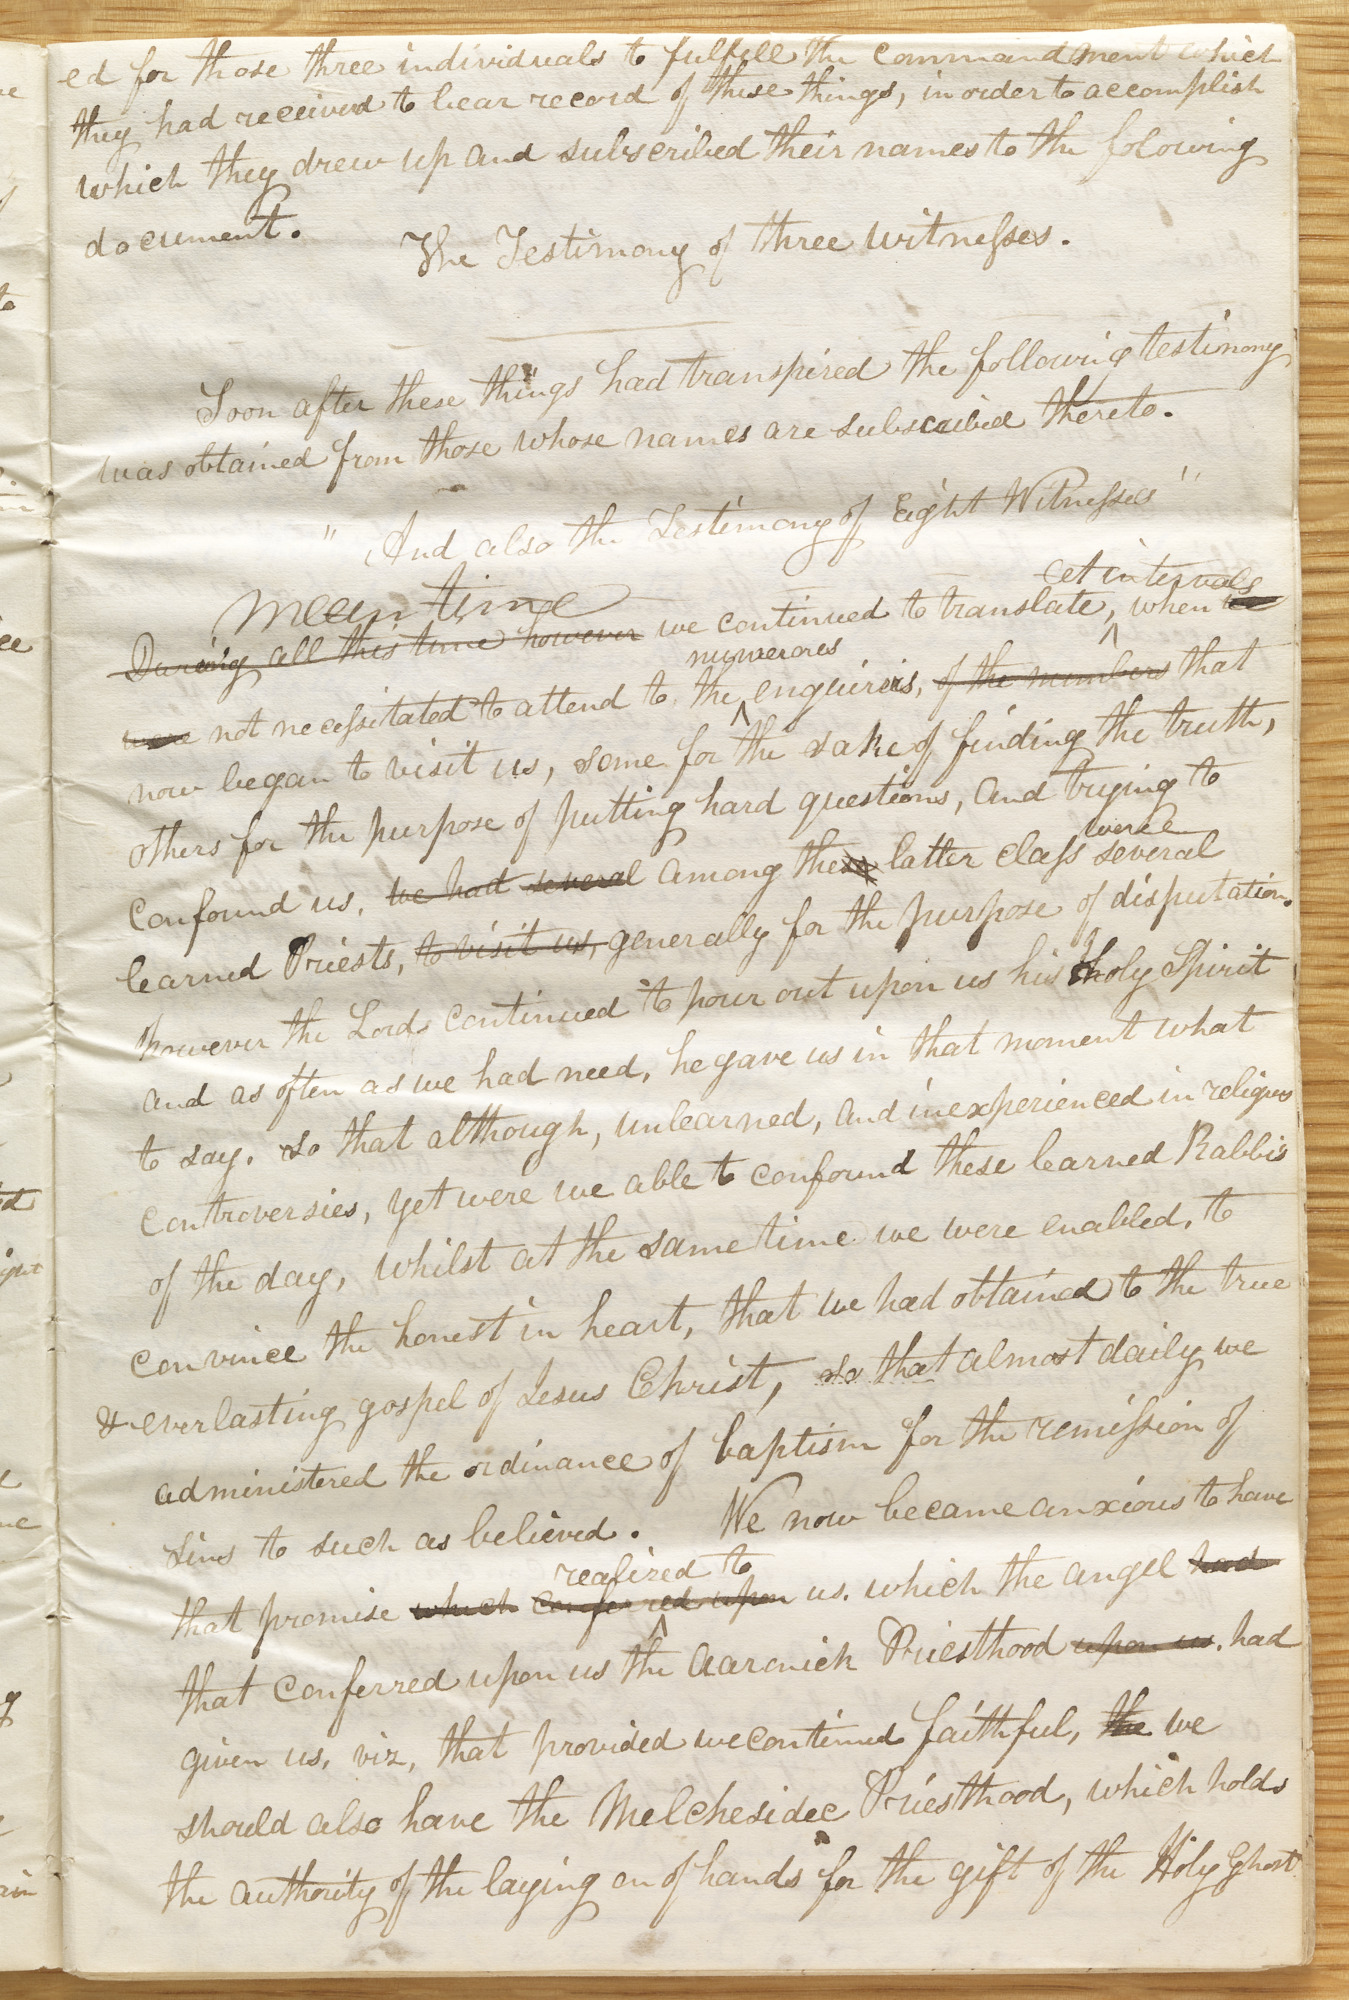 ed for those three individuals to fulfill the commandment which
they had received to bear record of these things, in order to accomplish
which they drew up and subscribed their names to the folowing
document.
The Testimony of three witnesses.
Soon after these things had transpired the following testimony
was obtained from those whose names are subscribed thereto.
" And also the Testimony of Eight Witnesses "
mean time
at intervals
During all this time however we continued to translate, when
numerous
were not necessitated to attend to the enquirers, of the numbers that
now began to visit us, some for the sake of finding the truth,
others for the purpose of putting hard questions, and trying to
were
confound us, we had several among these latter class several
learned Priests, to visit us, generally for the purpose of disputation.
however the Lord continued to pour out upon us his holy Spirit
and as often as we had need, he gave us in that moment what
to say. so that although, unlearned, and inexperienced in religious
controversies, yet were we able to confound these learned Rabbis
of the day, whilst at the same time we were enabled, to
convince the honest in heart, that we had obtained to the true
& everlasting gospel of Jesus Christ, so that almost daily we
administered the ordinance of baptism for the remission of
sins to such as believed. We now became anxious to have
realized to
that promise which conferred upon us. which the angel had
that conferred upon us the Aaronick Priesthood upon us. had
given us, viz, that provided we continued faithful, the we
should also have the Melchesidec Priesthood, which holds
the authority of the laying on of hands for the gift of the Holy Ghost